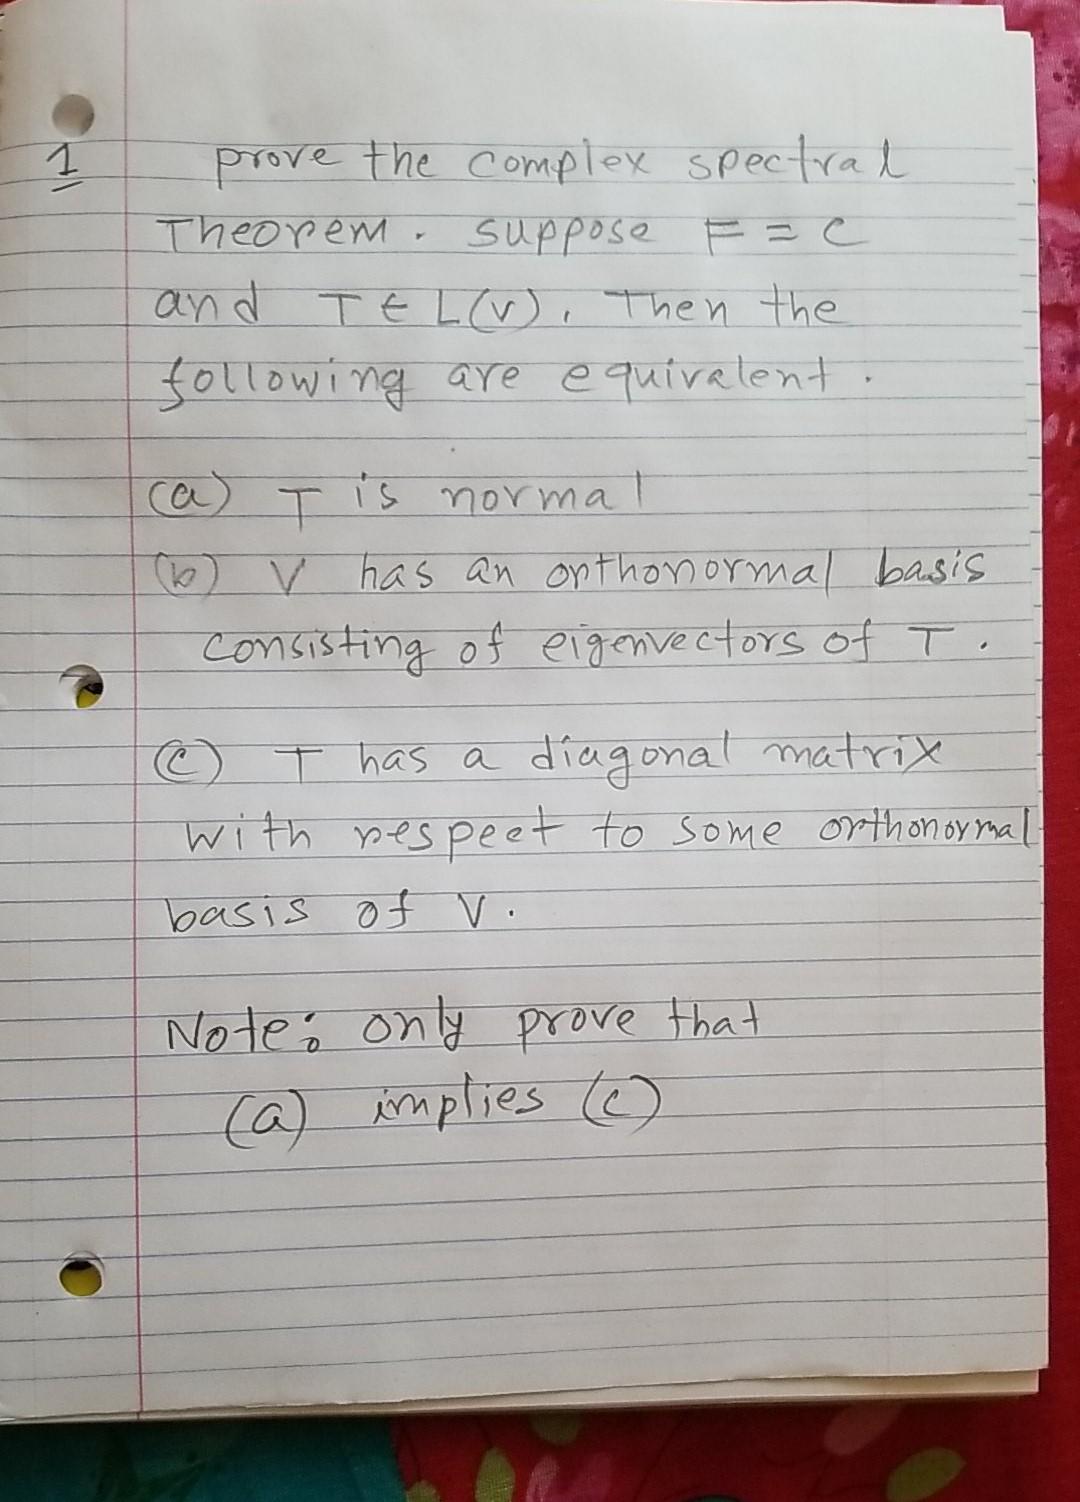 1 prove the complex spectral
Theorem. suppose F = C
and T ∈ L(V), Then the
following are equivalent.
(a) T is normal
(b) V has an orthonormal basis
consisting of eigenvectors of T.
(c) T has a diagonal matrix
with respect to some orthonormal
basis of V.
Note: only prove that
(a) implies (c)